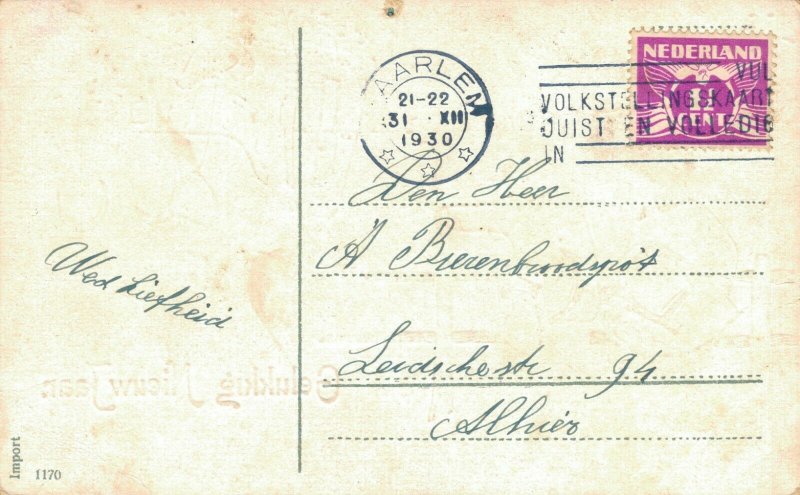 HAARLEM
21-22
31 XII
1930
NEDERLAND
VUL
VOLKSTELLINGSKAART
JUIST EN VOLLEDIG
IN
Den Heer
A
Leidschestr 94
Alhier
Wed Liefheid
Gelukkig Nieuw Jaar
Import
1170